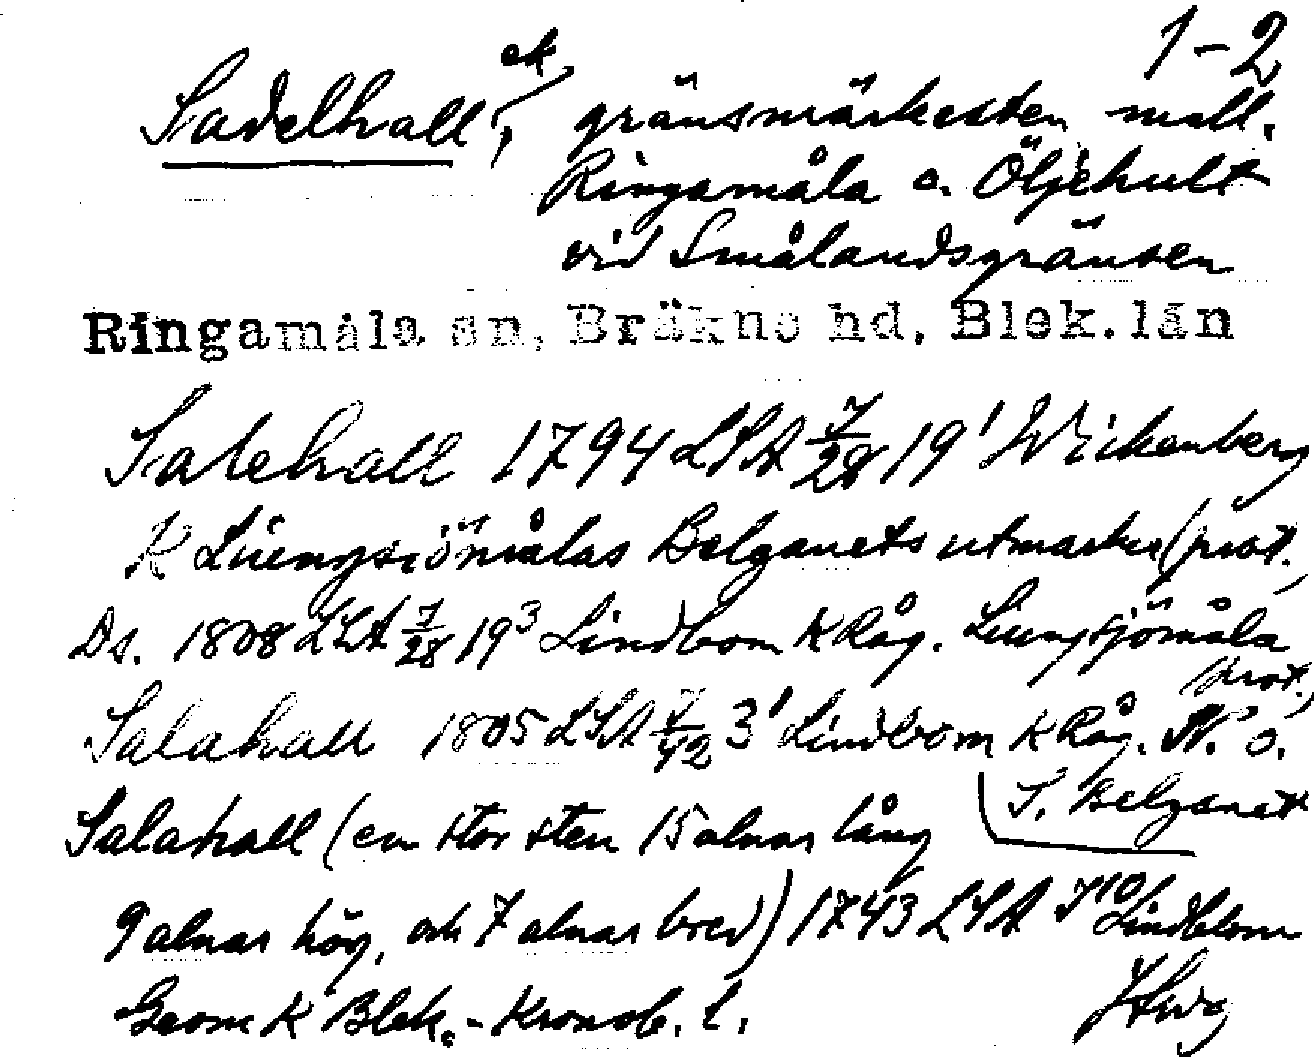 1-2
Sadelhall, ek, gränsmärkesten mell.
Ringamåla o. Öljehult
vid Smålandsgränsen
Ringamåla sn, Bräkne hd, Blek. län
Salehall 1794 LSA 7/28 19¹ Wickenberg
K Liungsiömålas Belganets utmarker (prot.,
Ds. 1808 LSA 7/28 19³ Lindbom K Råg. Liungsjömåla
prot.,
Salahall 1805 LSA 7/42 3¹ Lindbom K Råg. N. o.
S. Belganet
Salahall (en stor sten 15 alnar lång
9 alnar hög, och 7 alnar bred) 1743 LSA J¹⁰ Lindblom
Geom K Blek.-Kronob. l.